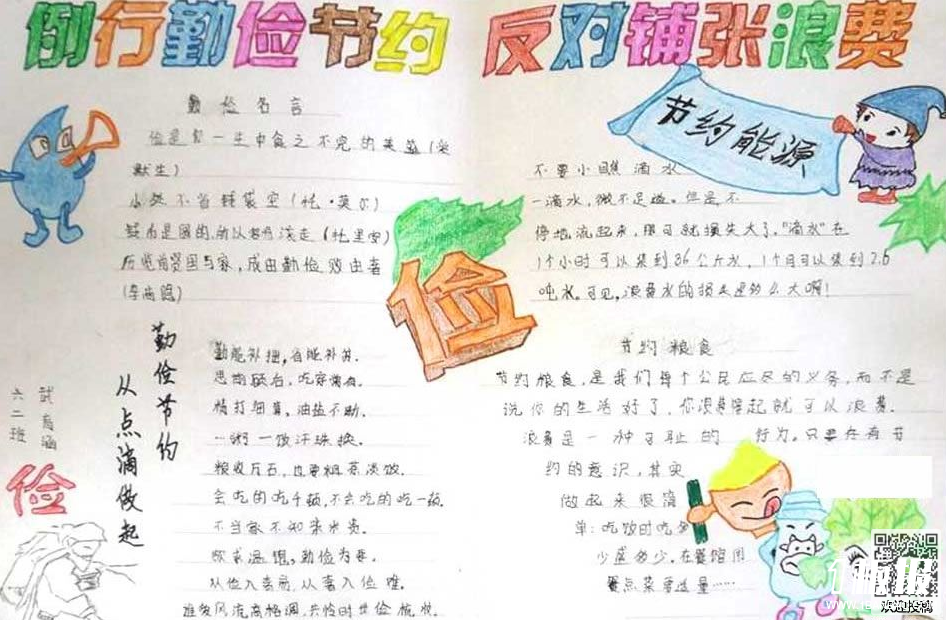 例行勤俭节约 反对铺张浪费
勤俭名言
俭是你一生中食之不完的美筵(爱
默生)
小处不省钱袋空(托·莫尔)
钱币是圆的,所以容易滚走(杜里安)
历览前贤国与家,成由勤俭败由奢
(李商隐)
俭
节约能源
不要小瞧滴水
一滴水,微不足道。但是不
停地流起来,那可就损失大了。"滴水"在
1个小时可以集到36公斤水,1个月可以集到2.6
吨水。可见,浪费水的损失是多么大啊!
勤俭节约
从点滴做起
武
六二班
俭
勤能补拙,省能补贫。
思前顾后,吃穿常有。
精打细算,油盐不断。
一粥一饭汗珠换。
粮收万石,也要粗茶淡饭。
会吃的吃千顿,不会吃的吃一顿。
不当家不知柴米贵。
欲求温饱,勤俭为要。
从俭入奢易,从奢入俭难。
谁爱风流高格调,共怜时世俭梳妆。
节约粮食
节约粮食,是我们每个公民应尽的义务,而不是
说你的生活好了,你浪费得起就可以浪费.
浪费是一种可耻的行为。只要存有节
约的意识,其实
做起来很简
单:吃饭时吃多
少盛多少.在餐馆用
餐点菜要适量……
欢迎投稿